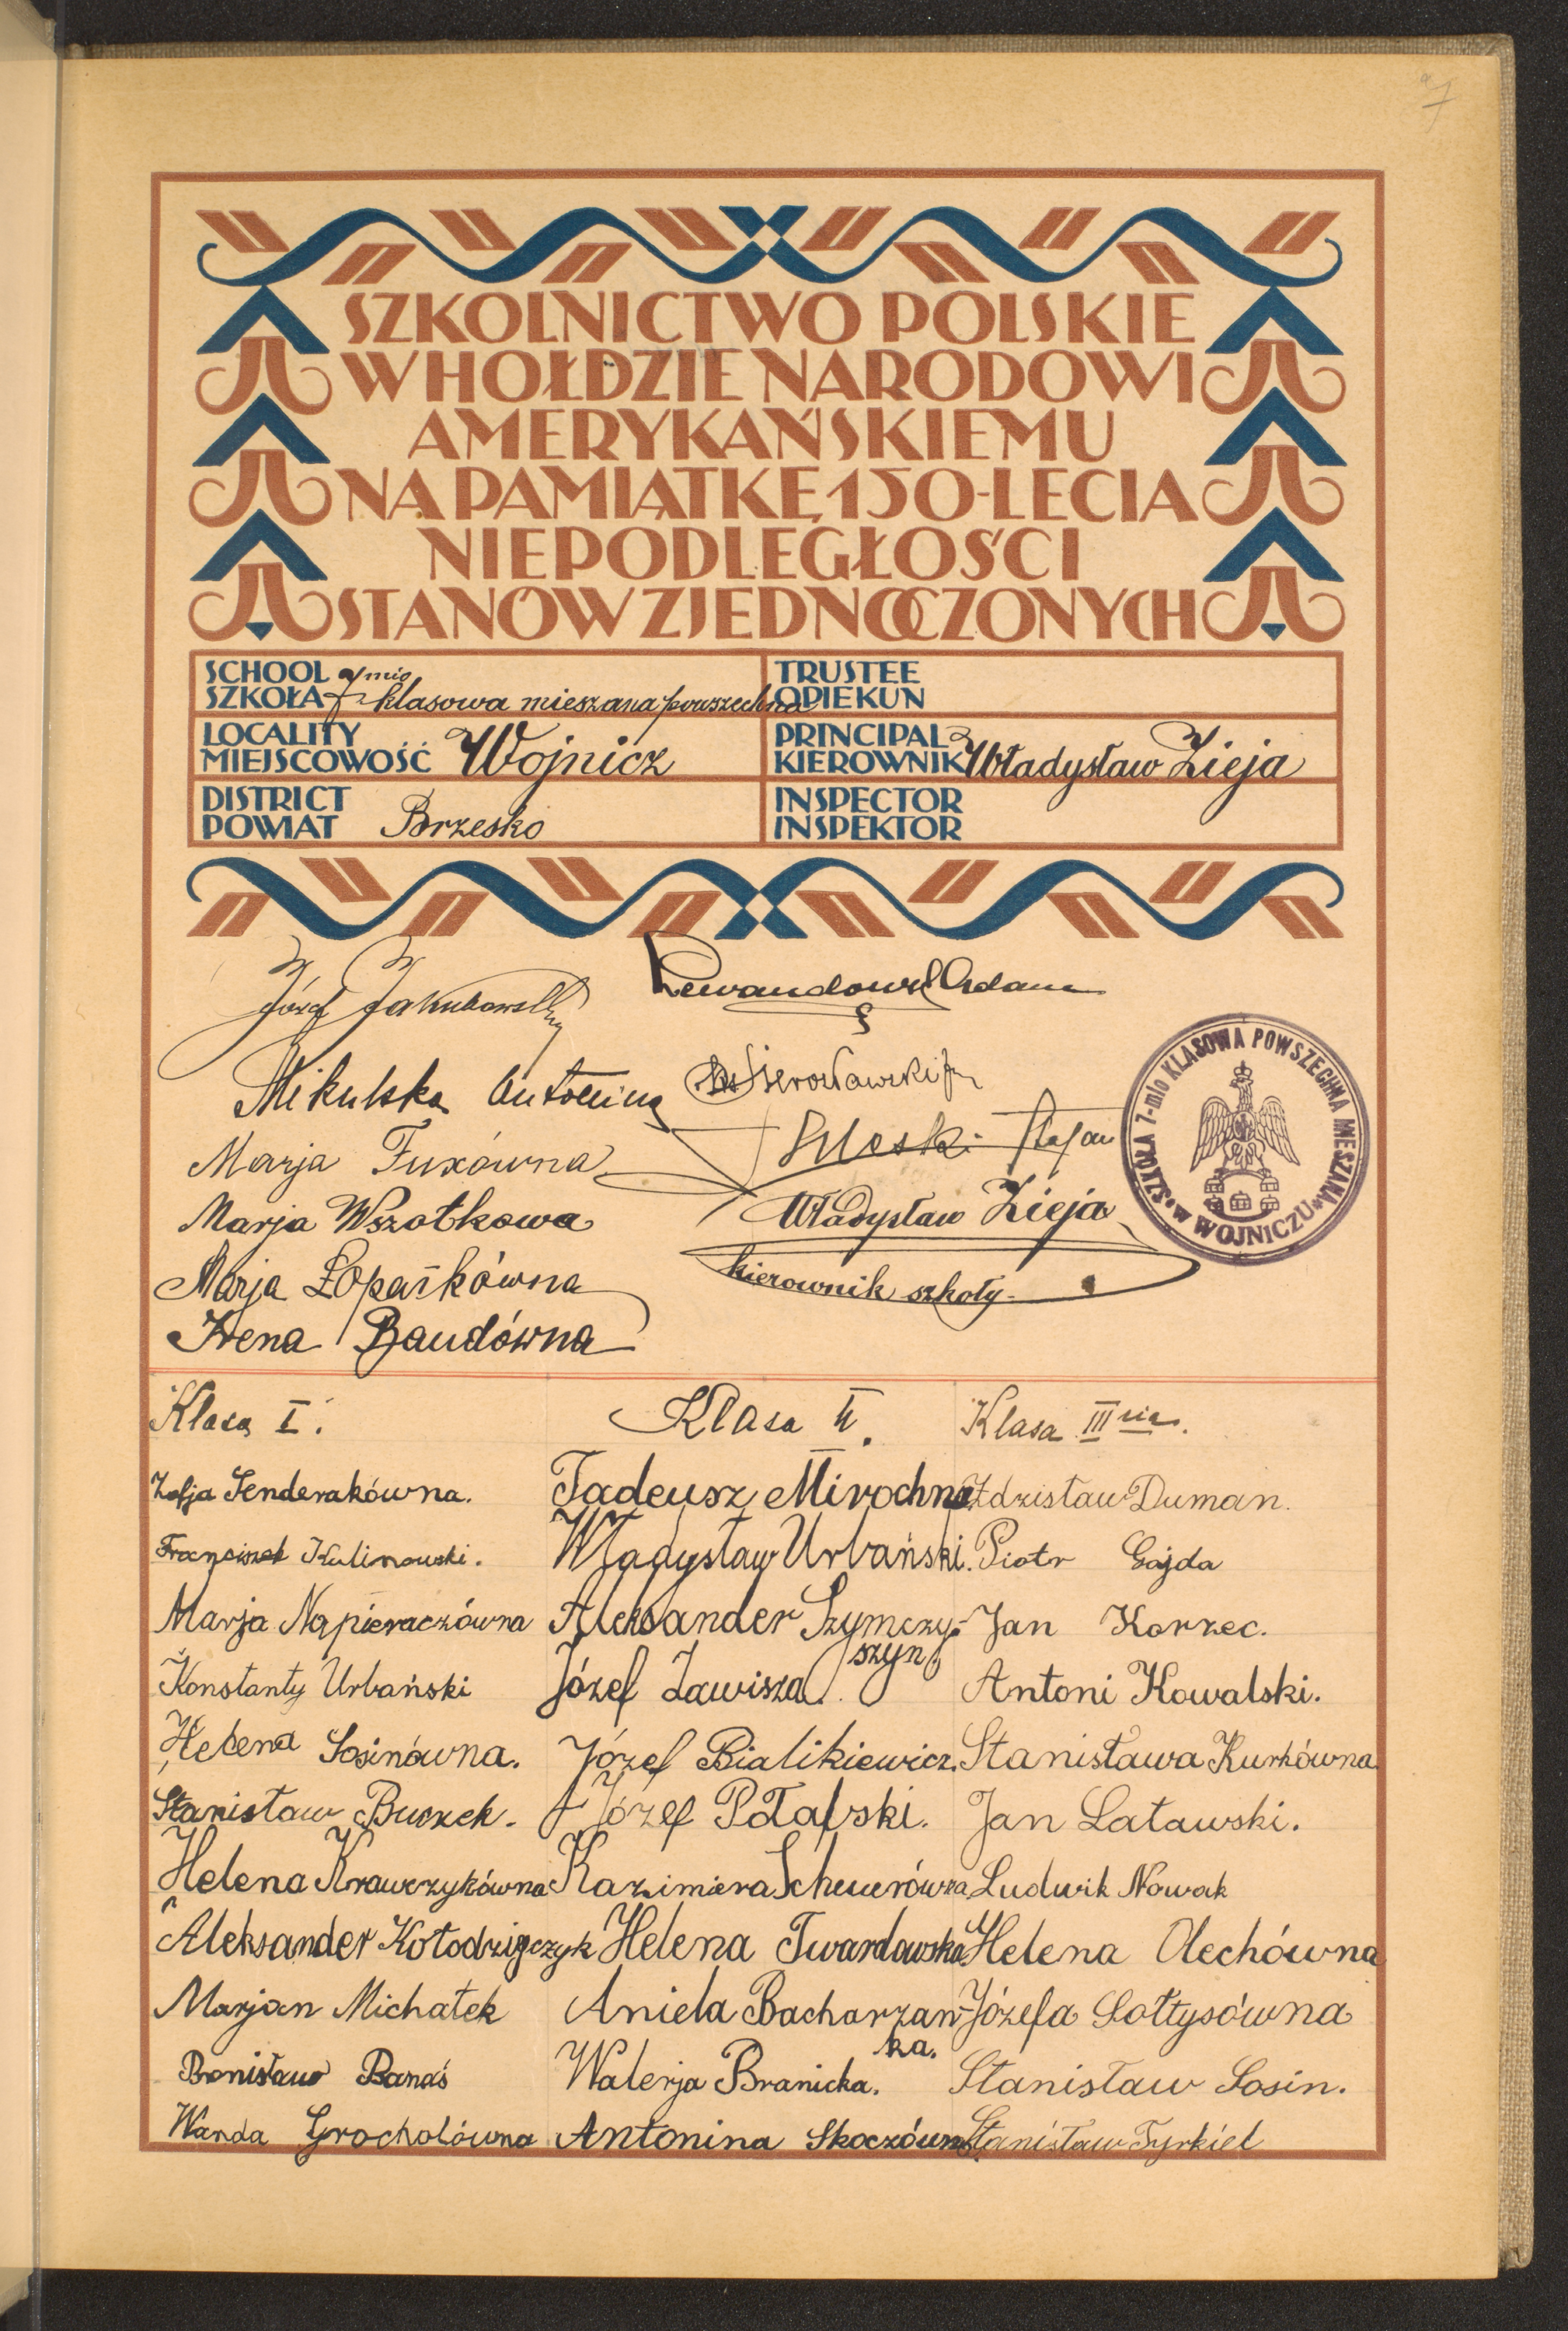 SZKOLNICTWO POLSKIE
W HOŁDZIE NARODOWI
AMERYKAŃSKIEMU
NA PAMIĄTKĘ 150-LECIA
NIEPODLEGŁOŚCI
STANÓW ZJEDNOCZONYCH
SCHOOL
SZKOŁA 7 mio klasowa mieszana powszechna
TRUSTEE
OPIEKUN
LOCALITY
MIEJSCOWOŚĆ Wojnicz
PRINCIPAL
KIEROWNIK Władysław Zieja
DISTRICT
POWIAT Brzesko
INSPECTOR
INSPEKTOR
Józef Jakubowski
Lewandowski Adam
Mikulska Antonina
Marja Fuxówna
Stefan
Marja Wszołkowa
Władysław Zieja
kierownik szkoły
Marja Łopatkówna
Irena Baudówna
SZKOŁA 7-mio KLASOWA POWSZECHNA MIESZANA
W WOJNICZU
Klasa I.
Zofja Senderakówna.
Franciszek Kulinowski.
Marja Napieraczówna
Konstanty Urbański
Helena Sosinówna.
Stanisław Buczek.
Helena Krawczykówna
Aleksander Kołodziejczyk
Marjan Michałek
Bronisław Banaś
Wanda Grocholówna
Klasa II.
Tadeusz Mirochna
Władysław Urbański.
Aleksander Szymczy-
szyn.
Józef Zawisza.
Józef Bialikiewicz.
Józef Płafski.
Kazimiera Scheuerówna
Helena Twardowska.
Aniela Bacharzan-
ka.
Walerja Branicka.
Antonina Skoczówna
Klasa III cia.
Zdzisław Duman.
Piotr Gajda
Jan Korzec.
Antoni Kowalski.
Stanisława Kurkówna
Jan Latawski.
Ludwik Nowak
Helena Olechówna
Józefa Sołtysówna
Stanisław Sosin.
Stanisław Tyrkiel